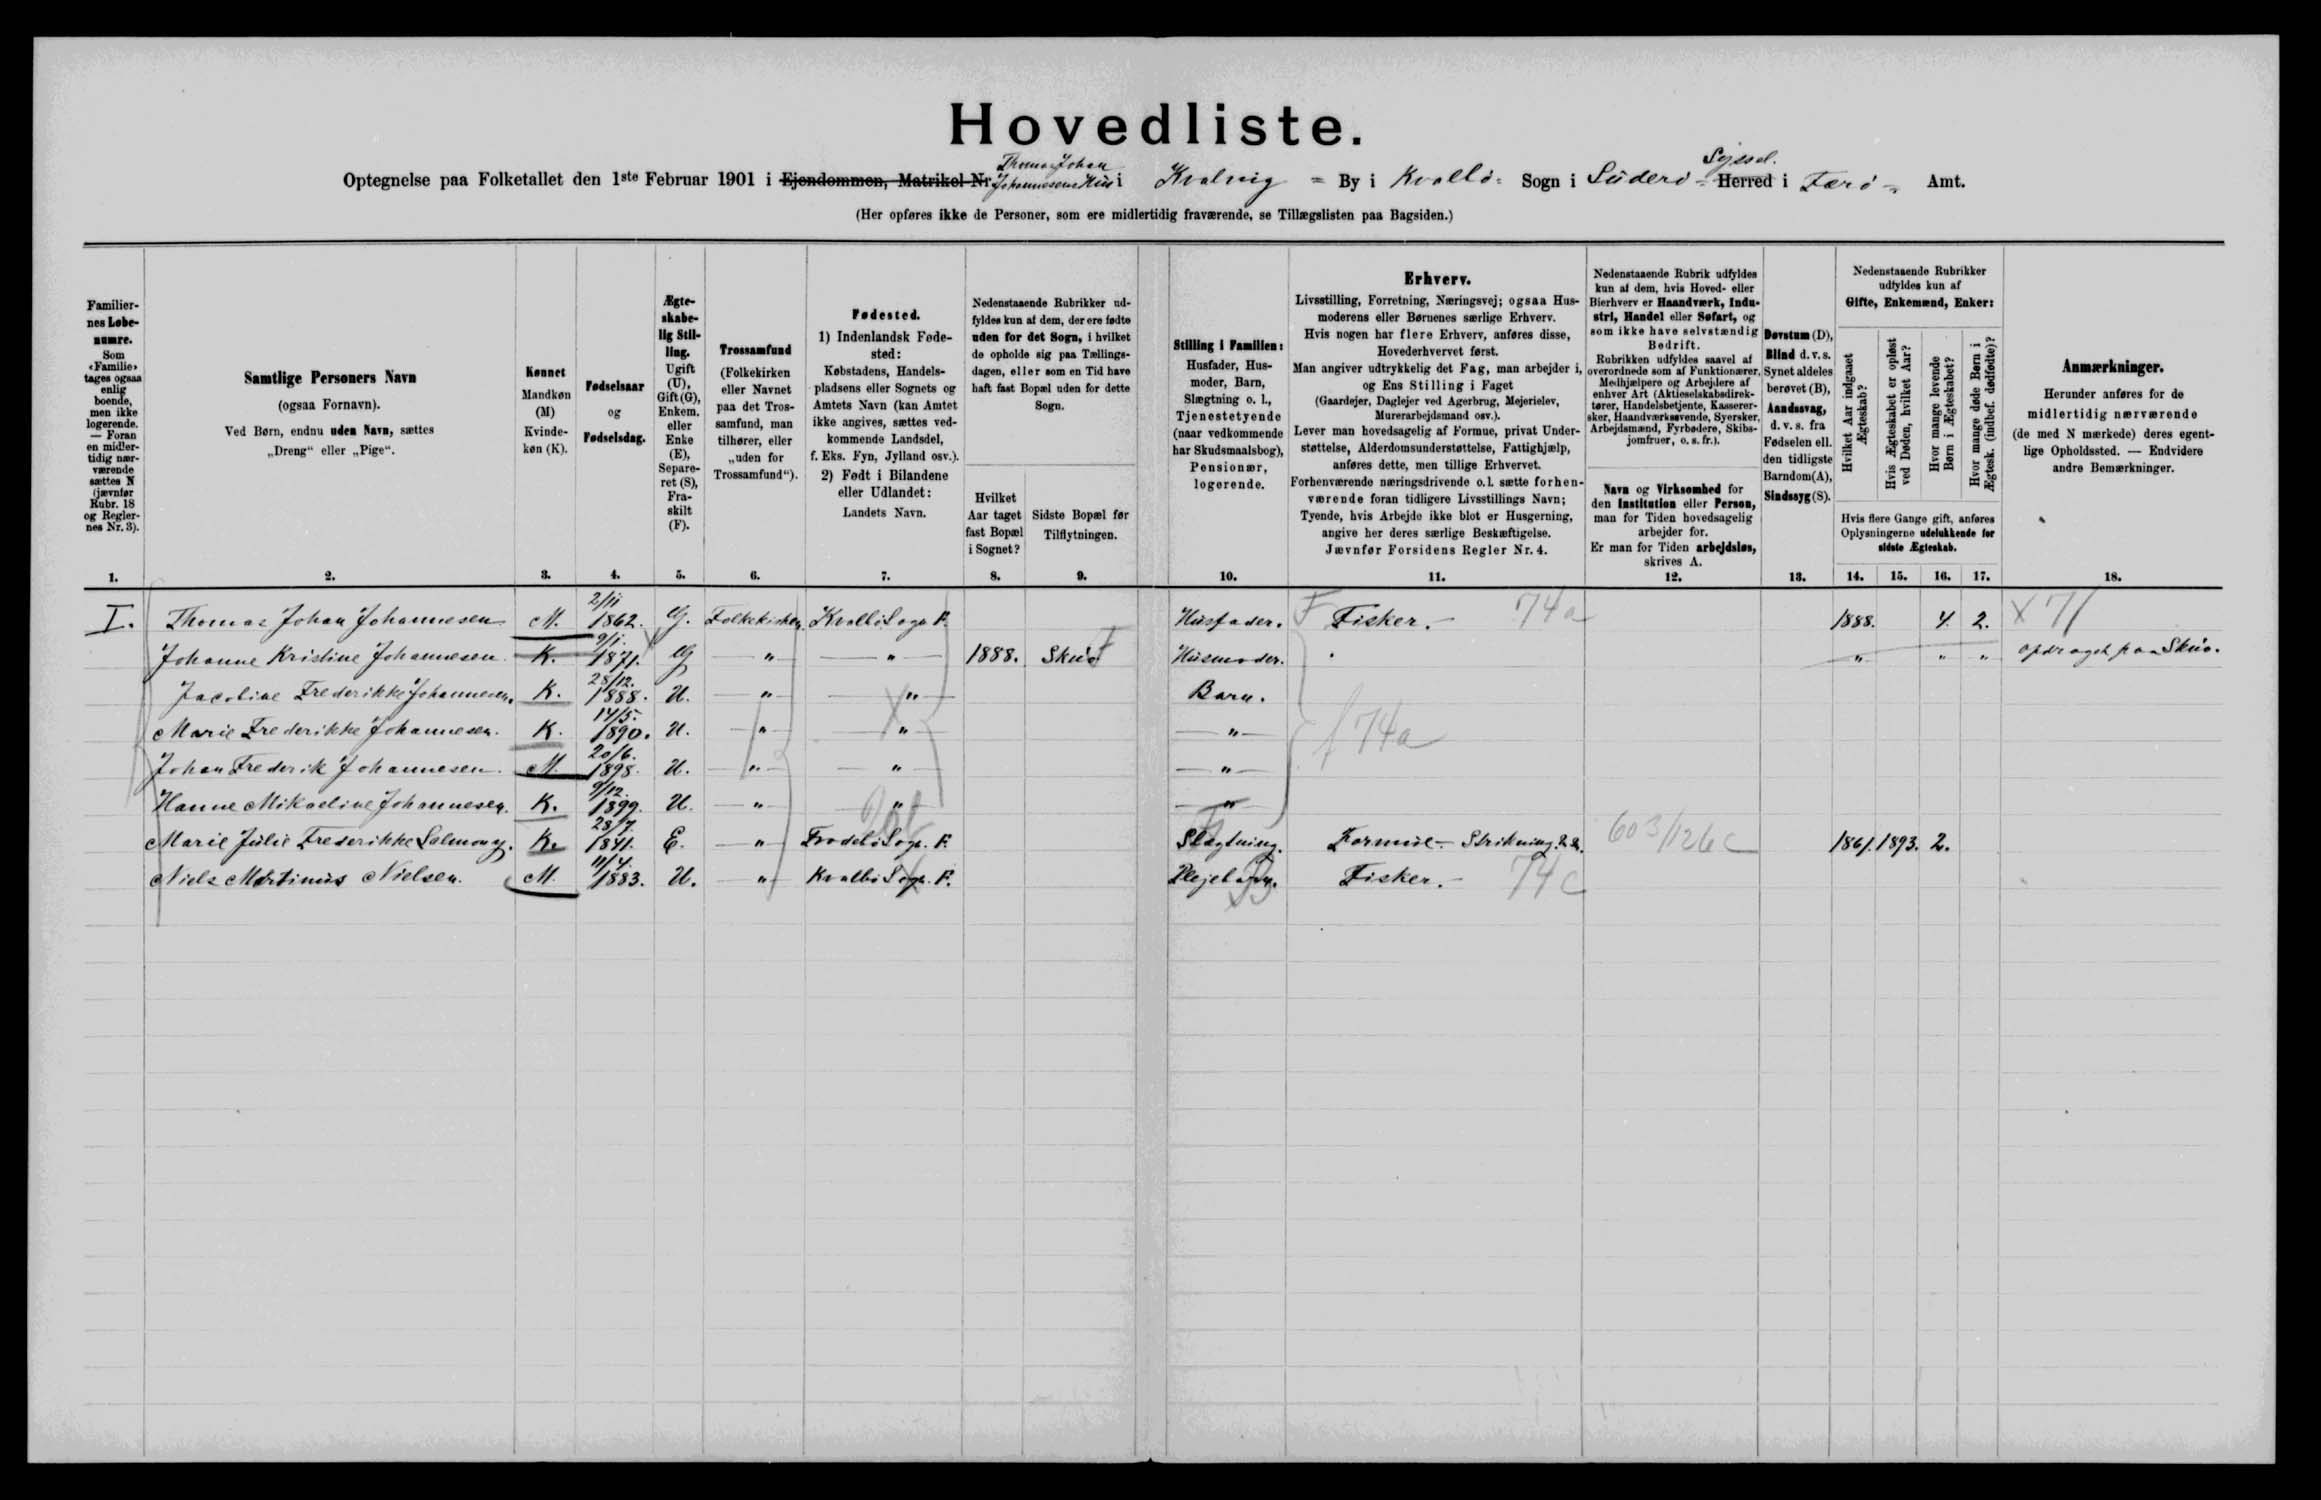 Hovedliste.
Thomas Johan Syssel.
Optegnelse paa Folketallet den 1ste Februar 1901 i Ejendommen, Matrikel Nr. Johannesens Hus i Kvalvig = By i Kvalbö = Sogn i Süderö = Herred i Færö = Amt.
(Her opføres ikke de Personer, som ere midlertidig fraværende, se Tillægslisten paa Bagsiden.)
Familiernes Løbenumre.
Som «Familie» tages ogsaa enlig boende, men ikke logerende. — Foran en midlertidig nærværende sættes N (jævnfør Rubr. 18 og Reglernes Nr. 3).
1.
Samtlige Personers Navn
(ogsaa Fornavn).
Ved Børn, endnu uden Navn, sættes
„Dreng“ eller „Pige“.
2.
Kønnet
Mandkøn (M)
Kvindekøn (K).
3.
Fødselsaar
og
Fødselsdag.
4.
Ægteskabelig Stilling.
Ugift (U), Gift (G), Enkem. eller Enke (E), Separeret (S), Fraskilt (F).
5.
Trossamfund
(Folkekirken eller Navnet paa det Trossamfund, man tilhører, eller „uden for Trossamfund“).
6.
Fødested.
1) Indenlandsk Fødested:
Købstadens, Handelspladsens eller Sognets og Amtets Navn (kan Amtet ikke angives, sættes vedkommende Landsdel, f. Eks. Fyn, Jylland osv.).
2) Født i Bilandene eller Udlandet:
Landets Navn.
7.
Nedenstaaende Rubrikker udfyldes kun af dem, der ere fødte uden for det Sogn, i hvilket de opholde sig paa Tællingsdagen, eller som en Tid have haft fast Bopæl uden for dette Sogn.
Hvilket Aar taget fast Bopæl i Sognet?
8.
Sidste Bopæl før Tilflytningen.
9.
Stilling i Familien:
Husfader, Husmoder, Barn, Slægtning o. l., Tjenestetyende (naar vedkommende har Skudsmaalsbog), Pensionær, logerende.
10.
Erhverv.
Livsstilling, Forretning, Næringsvej; ogsaa Husmoderens eller Børnenes særlige Erhverv.
Hvis nogen har flere Erhverv, anføres disse, Hovederhvervet først.
Man angiver udtrykkelig det Fag, man arbejder i, og Ens Stilling i Faget
(Gaardejer, Daglejer ved Agerbrug, Mejerielev, Murerarbejdsmand osv.).
Lever man hovedsagelig af Formue, privat Understøttelse, Alderdomsunderstøttelse, Fattighjælp, anføres dette, men tillige Erhvervet.
Forhenværende næringsdrivende o.l. sætte forhenværende foran tidligere Livsstillings Navn;
Tyende, hvis Arbejde ikke blot er Husgerning, angive her deres særlige Beskæftigelse.
Jævnfør Forsidens Regler Nr. 4.
11.
Nedenstaaende Rubrik udfyldes kun af dem, hvis Hoved- eller Bierhverv er Haandværk, Industri, Handel eller Søfart, og som ikke have selvstændig Bedrift.
Rubrikken udfyldes saavel af overordnede som af Funktionærer, Medhjælpere og Arbejdere af enhver Art (Aktieselskabsdirektører, Handelsbetjente, Kasserersker, Haandværkssvende, Syersker, Arbejdsmænd, Fyrbødere, Skibsjomfruer, o. s. fr.).
Navn og Virksomhed for den Institution eller Person, man for Tiden hovedsagelig arbejder for.
Er man for Tiden arbejdsløs, skrives A.
12.
Døvstum (D), Blind d. v. s. Synet aldeles berøvet (B), Aandssvag, d. v. s. fra Fødselen ell. den tidligste Barndom (A), Sindssyg (S).
13.
Nedenstaaende Rubrikker udfyldes kun af
Gifte, Enkemænd, Enker:
Hvilket Aar indgaaet Ægteskab?
Hvis Ægteskabet er opløst ved Døden, hvilket Aar?
Hvor mange levende Børn i Ægteskabet?
Hvor mange døde Børn i Ægtesk. (indbef. dødfødte)?
Hvis flere Gange gift, anføres Oplysningerne udelukkende for sidste Ægteskab.
14. 15. 16. 17.
Anmærkninger.
Herunder anføres for de midlertidig nærværende (de med N mærkede) deres egentlige Opholdssted. — Endvidere andre Bemærkninger.
18.
I. Thomas Johan Johannesen M. 2/11 1862. G. Folkekirken. Kvalbö Sogn F. Husfader. F Fisker. 74a 1888. 4. 2. X 7/
Johanne Kristine Johannesen. K. 9/1. 1871. G — " — — " — 1888. Skuö Husmoder. " " " opdraget paa Skuö.
Jacobine Frederikke Johannesen. K. 28/12. 1888. U. — " — — " — Barn.
Marie Frederikke Johannesen. K. 14/5. 1890. U. — " — — " — — " — f 74a
Johan Frederik Johannesen. M. 20/6. 1898. U. — " — — " — — " —
Hanne Mikaeline Johannesen. K. 9/12. 1899. U. — " — — " — — " —
Marie Julie Frederikke Salmony. K. 28/7. 1841. E. — " — Frodebö Sogn. F. Slægtning. Formue - Strikning. 603/126c 1861. 1893. 2.
Niels Martinus Nielsen. M. 11/4. 1883. U. — " — Kvalbö Sogn. F. Plejebarn. Fisker. 74c